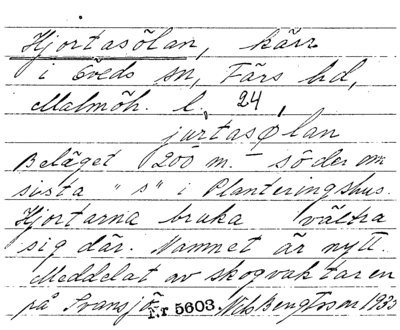 Hjortasölan, kärr
i Öveds sn, Färs hd,
Malmöh. l. 24,
jurtasølan
Beläget 200 m. söder om
sista "s" i Planteringshus.
Hjortarna bruka vältra
sig där. Namnet är nytt.
Meddelat av skogvaktaren
på Svansjö. Nils Bengtsson 1933
F.r 5603.